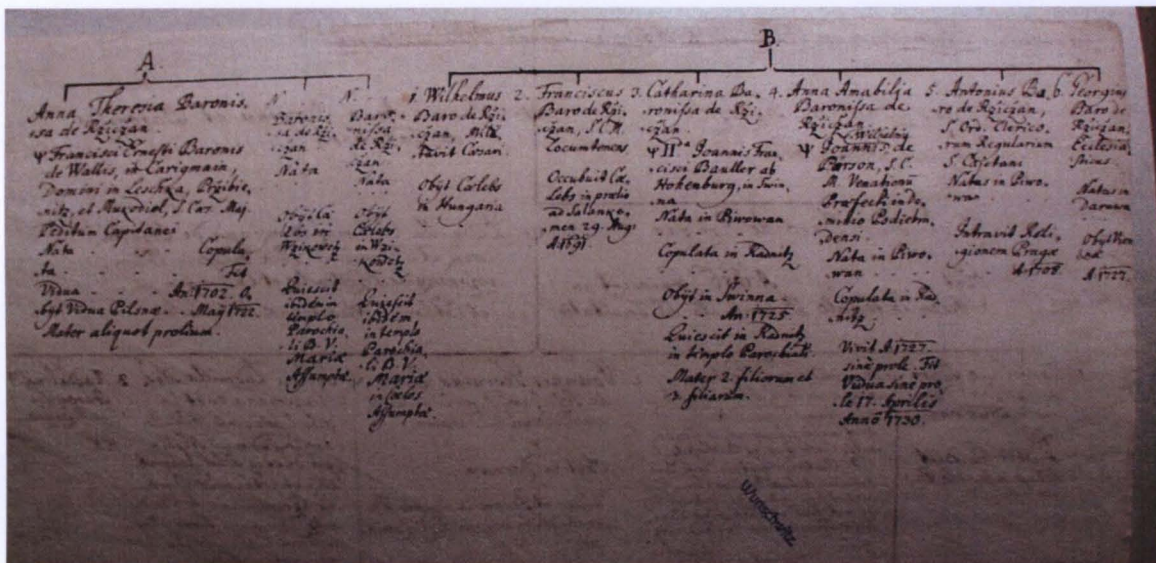 A.
Anna Theresia Baronis.
sa de Rziczan.
Ψ Francisci Ernesti Baronis
de Wallis, in Carigmain,
Domini in Leschka, Przibie.
nitz, et Muzodiol, S. Caes. Maj.
Peditum Capitanei
Nata . . . Copula.
ta . . . Fit
Vidua . . . An: 1702. O.
byt Vidua Pilsnae . . May 1722.
Mater aliquot prolium.
N.
Baronis.
sa de Rzi.
czan
Nata
Obijt Cae
lebs in
Quiescit
ibidem in
templo
Parochia.
li B. V.
Mariae
Assumptae.
N.
Baro.
nissa
de Rzi.
czan
Nata
Obijt
Caelebs
in Wzi.
Quiescit
ibidem
in templo
Parochia.
li B. V.
Mariae
in Coelos
Assumptae.
B.
1. Wilhelmus
Baro de Rzi.
czan, Mili.
tavit Caesari
Obijt Caelebs
in Hungaria
2. Franciscus
Baro de Rzi.
czan, S. C. M.
Locumtenens
Occubuit Cae.
lebs in praelio
ad Salanke.
men 29. Aug:
A. 1691.
3. Catharina Ba.
ronissa de Rzi.
czan
Ψ II.ª Joannis Fran.
cisci Bauller ab
Hohenburg, in Swin.
na
Nata in Biwowan
Copulata in Radnitz
Obijt in Swinna . .
. . . An: 1725.
Quiescit in Radnitz
in templo Parochiali.
Mater 2. filiorum et
2. filiarum.
4. Anna Amabilia
Baronissa de
Rziczan
Wilhelmi
Ψ Joannis de
Person, S. C.
M. Venationū
Praefecti in do.
minio Podiebra.
densi
Nata in Biwo.
wan
Copulata in Rad.
nitz.
Vivit A. 1727.
sine prole. Fit
Vidua sine pro.
le 17. Aprilis
Anno 1730.
5. Antonius Ba.
ro de Rziczan,
S. Ord. Clerico.
rum Regularium
S. Cajetani
Natus in Biwo.
wan
Intravit Reli.
gionem Pragae
A. 1708.
6. Georgius
Baro de
Rziczan,
Ecclesia.
sticus
Natus in
Darowa
Obijt Vien
nae
A. 1727.
Wunschwitz